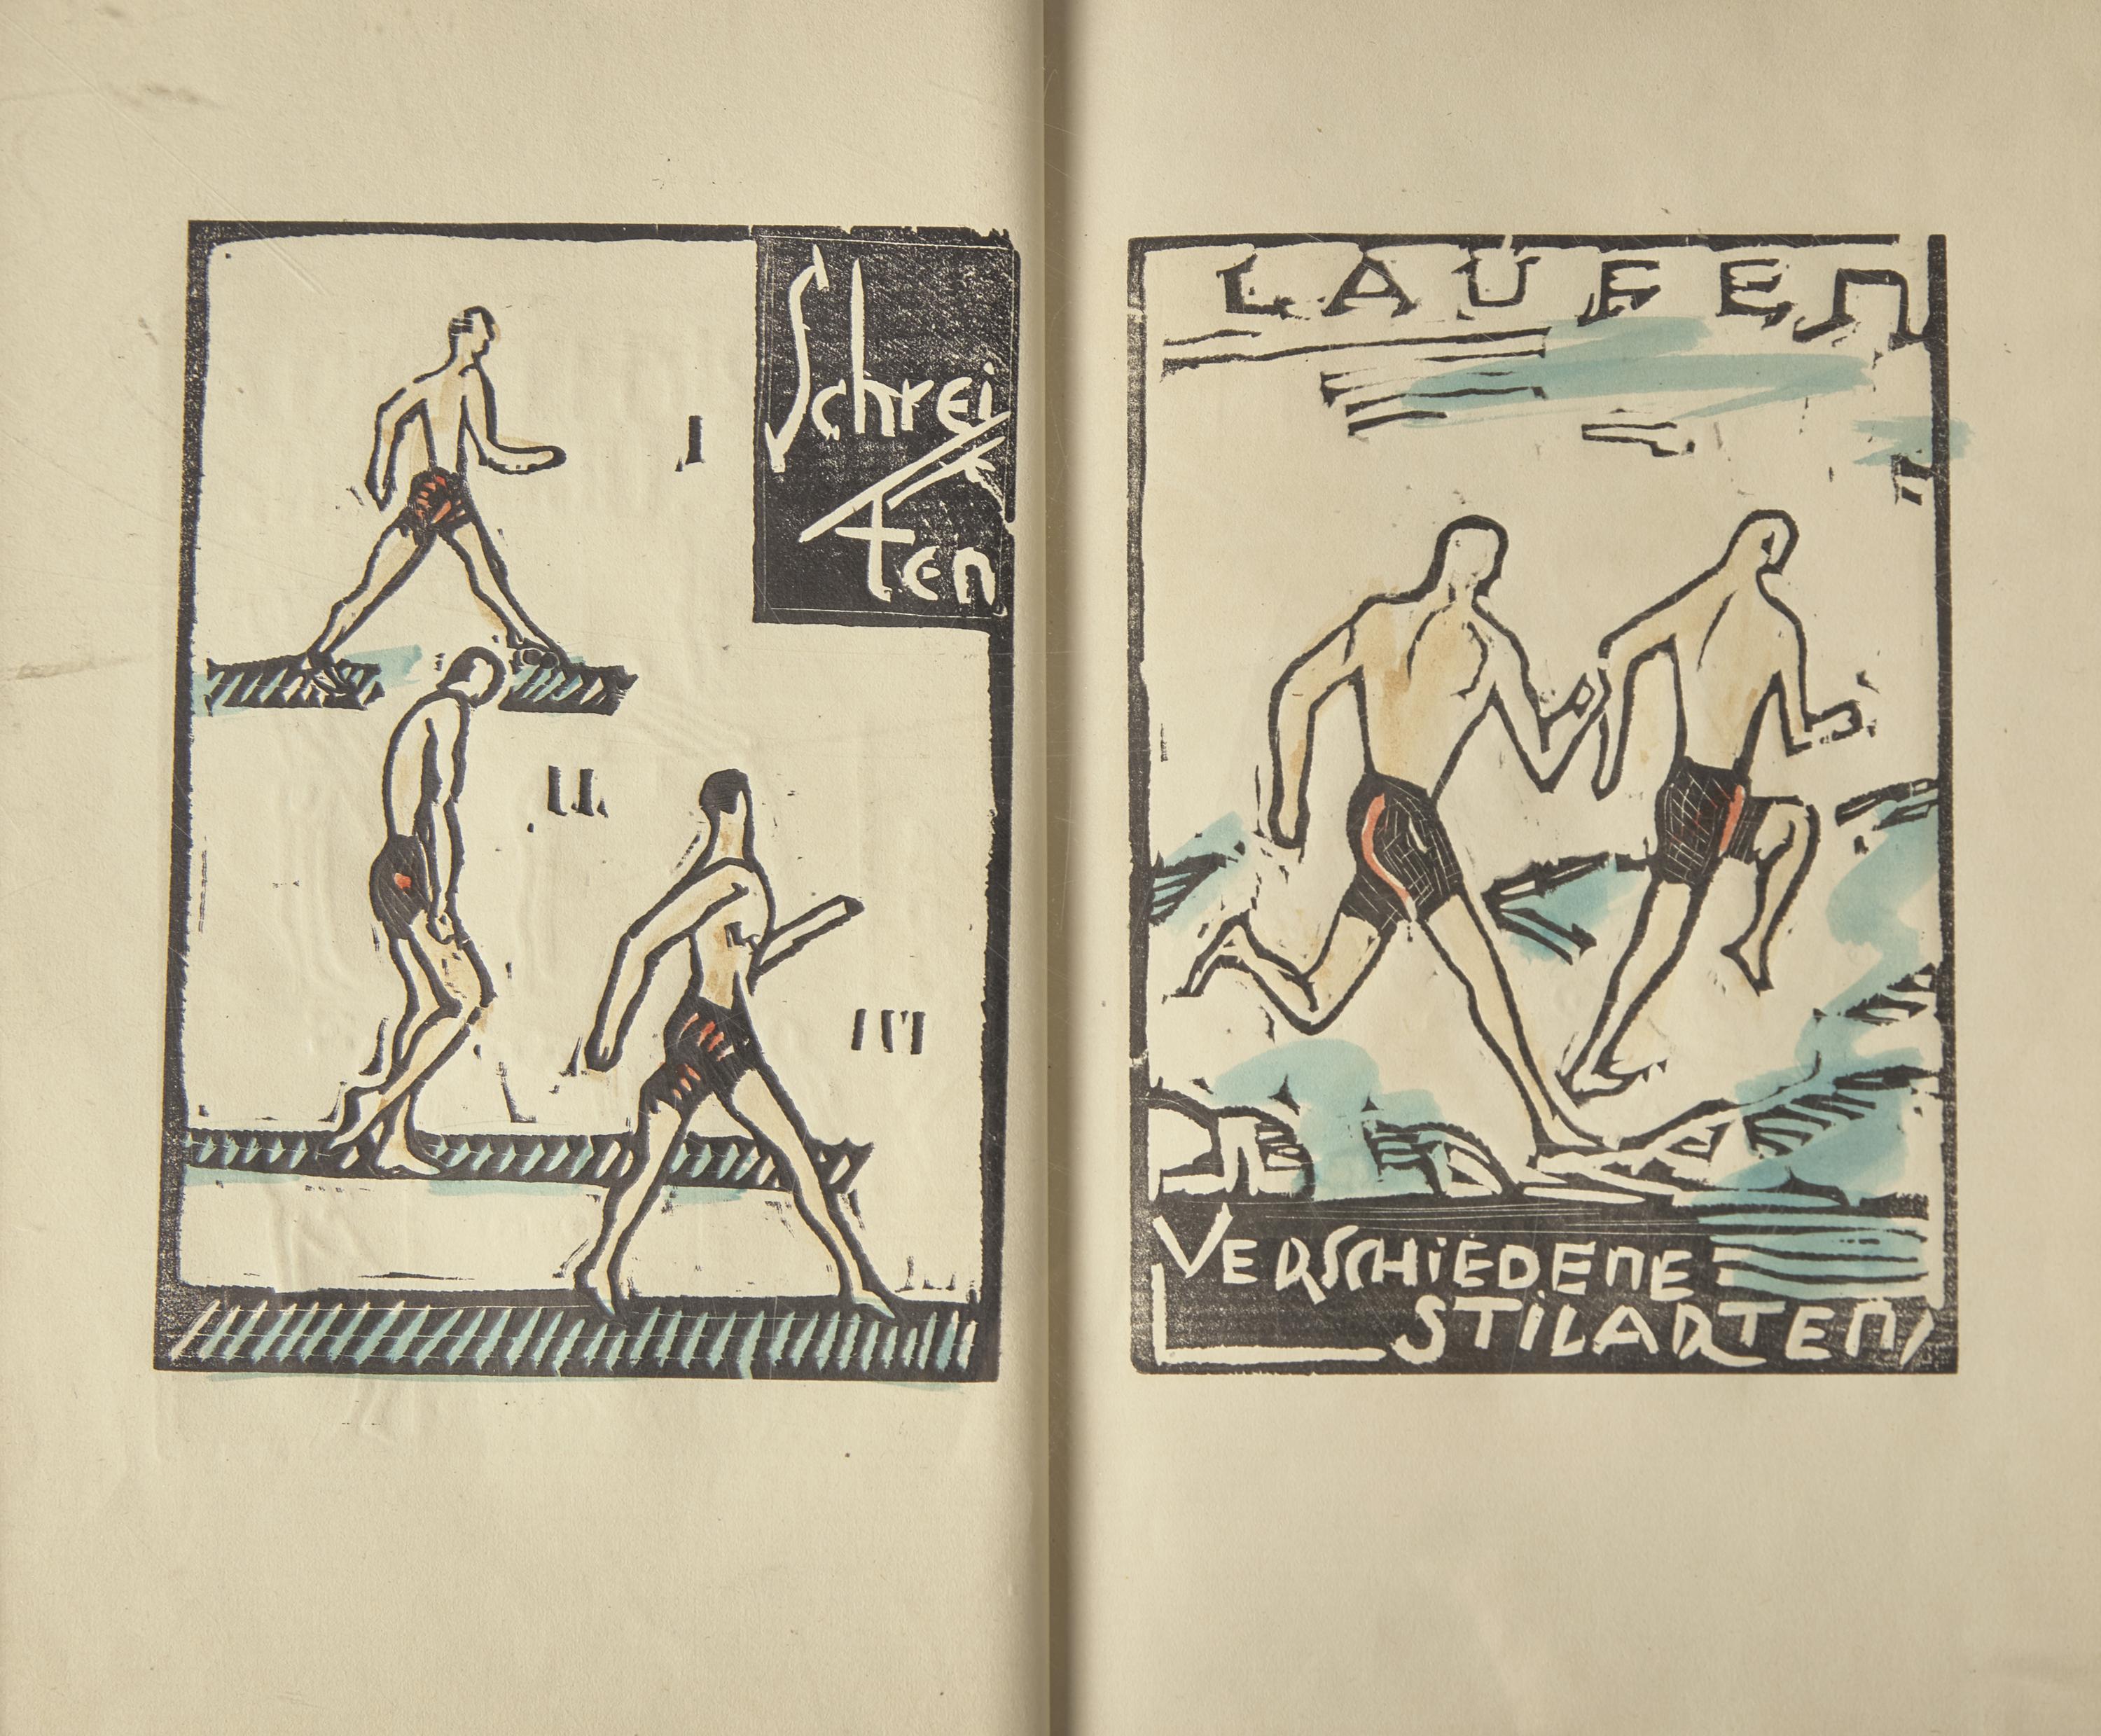 Schrei
ten
I
II.
III
LAUFEN
VERSCHIEDENE
STILARTEN,